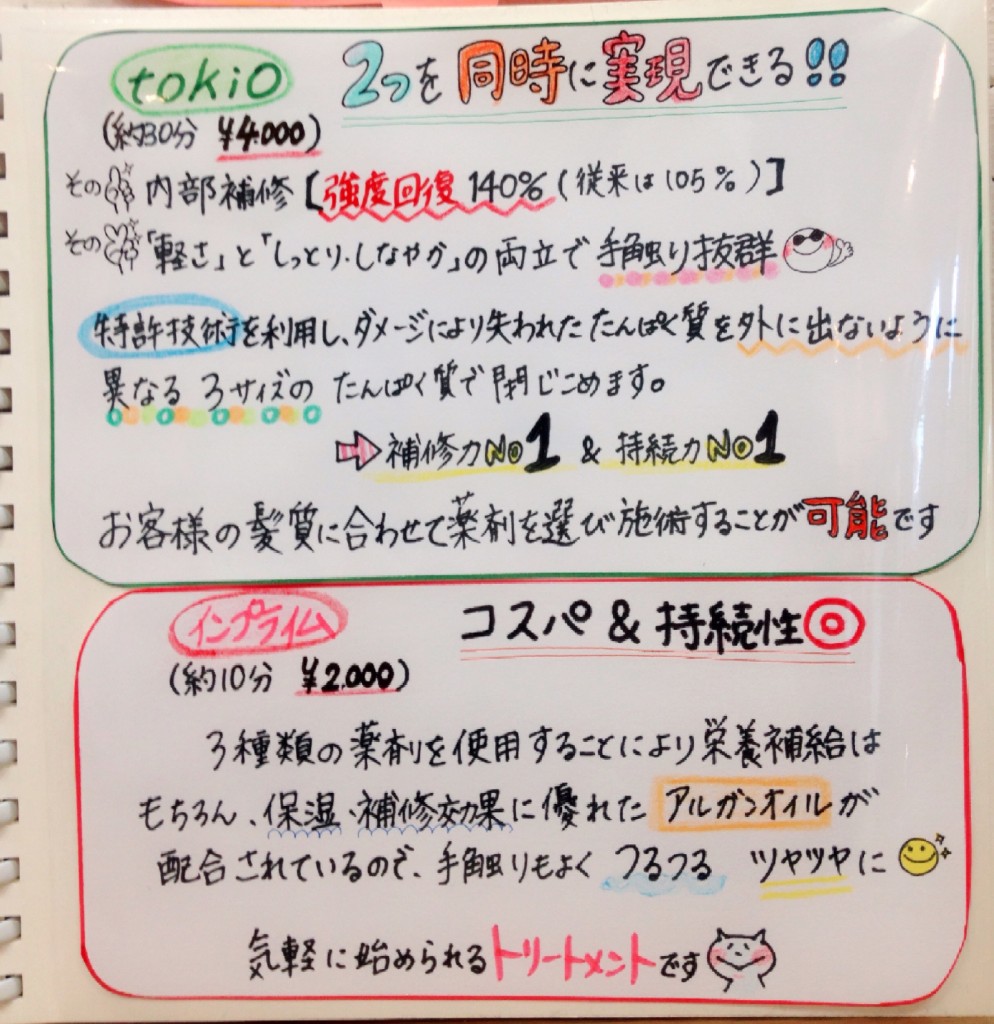 tokio
2つを同時に実現できる!!
(約30分 ¥4.000)
その 内部補修【強度回復140%(従来は105%)】
その 「軽さ」と「しっとり・しなやか」の両立で 手触り抜群
特許技術を利用し、ダメージにより失われたたんぱく質を外に出ないように
異なる 3サイズの たんぱく質で閉じこめます。
⇒補修力No1 & 持続力No1
お客様の髪質に合わせて薬剤を選び施術することが可能です
インプライム
コスパ & 持続性◎
(約10分 ¥2.000)
3種類の薬剤を使用することにより栄養補給は
もちろん、保湿、補修効果に優れた アルガンオイルが
配合されているので、手触りもよく つるつる ツヤツヤに
気軽に始められるトリートメントです